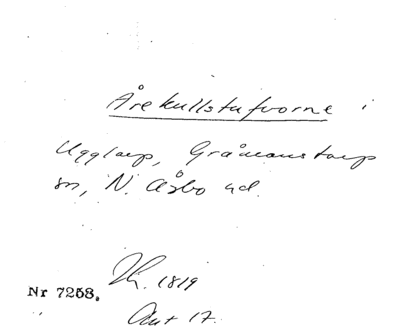 Årekullstufvorne i
Ugglarp, Gråmanstorps
sn, N. Åsbo hd.
Nr 7258.
Th. 1819
Akt 17.